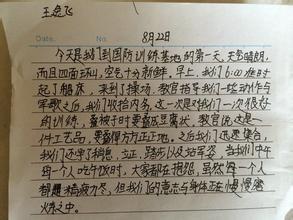 王逸飞
Date. 8月22日
今天是我们到国防训练基地的第一天,天空晴朗,
而且四面环山,空气十分新鲜。早上,我们6:00准时
起了床,来到了操场,教官指导我们一些动作与
军歌之后,我们收拾内务,这一次是对我们一次很好
的训练,叠被子时要叠成豆腐状,教官说这是一
件工艺品,要叠得方方正正地。之后我们迅速集合,
我们还学了稍息,立正,踏步以及站军姿。当我们中午
每一个人吃午饭时,大家都在抱怨,虽然每一个人
都精疲力尽,但我们的意志与身体正在慢慢磨
炼之中。